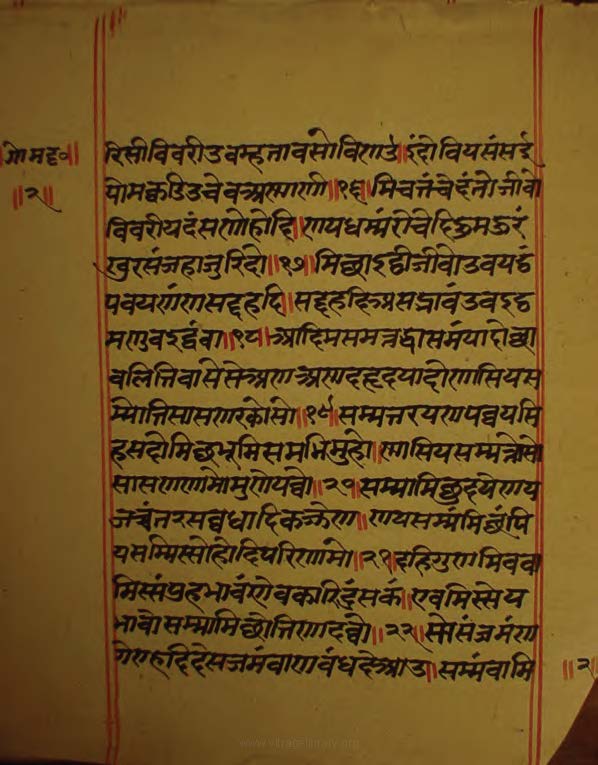 गोमट्ट०॥ रिसीविवरीउवम्हतावसोविणउ॥इंदोवियसंसई
॥२॥ योमक्कडिउचेवअणाणी॥१६॥मिच्चत्तंवेदंतोजीवो
विवरीयदंसणोहोदि॥णयधम्मंरोचेदिहुमहुरं
खुरसंजहाजुरिदो॥१७॥मिच्छाइट्ठीजीवोउवयट्ठं
पवयणंणसद्दहदि॥सद्दहदिअसद्भावंउवइट्ठ
मणुवइट्ठंवा॥१८॥आदिमसमत्तद्धासमयादोछा
वलित्तिवासेसेअणअणदरुदयादोणासियस
म्मोत्तिसासणरकोसो॥१९॥सम्मत्तरयणपव्वयसि
हसदोमिच्छभूमिसमभिमुहो॥णासियसम्मत्तोसो
सासणणामोमुणेयव्वो॥२०॥सम्मामिच्छुदयेणय
जच्चंतरसव्वघादिकज्जेण॥णयसम्मंमिच्छंपि
यसम्मिस्सोहोदिपरिणामो॥२१॥दहिगुणमिववा
मिस्संपुहभावंणेवकारिदुंसकं॥एवमिस्सेय
भावोसम्मामिच्छोत्तिणदव्वो॥२२॥सोसंजमंण
गेण्हदिदेसजमंवाणवंधदेआउ॥सम्मंवामि ॥२॥
www.vitragelibrary.org